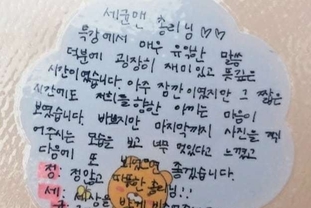 세균맨 총리님 ♡♡
특강에서 매우 유익한 말씀
덕분에 굉장히 재미있고 뜻깊은
시간이었습니다. 아주 잠깐이였지만 그 짧은
시간에도 저희를 향한 아끼는 마음이
보였습니다. 바쁘지만 마지막까지 사진을 찍
어주시는 모습을 보고 너무 멋있다고 느꼈고
다음에 또 뵈었으면 좋겠습니다.
정: 정많고 따뜻한 총리님!!
세: 세상을 밝게
균: